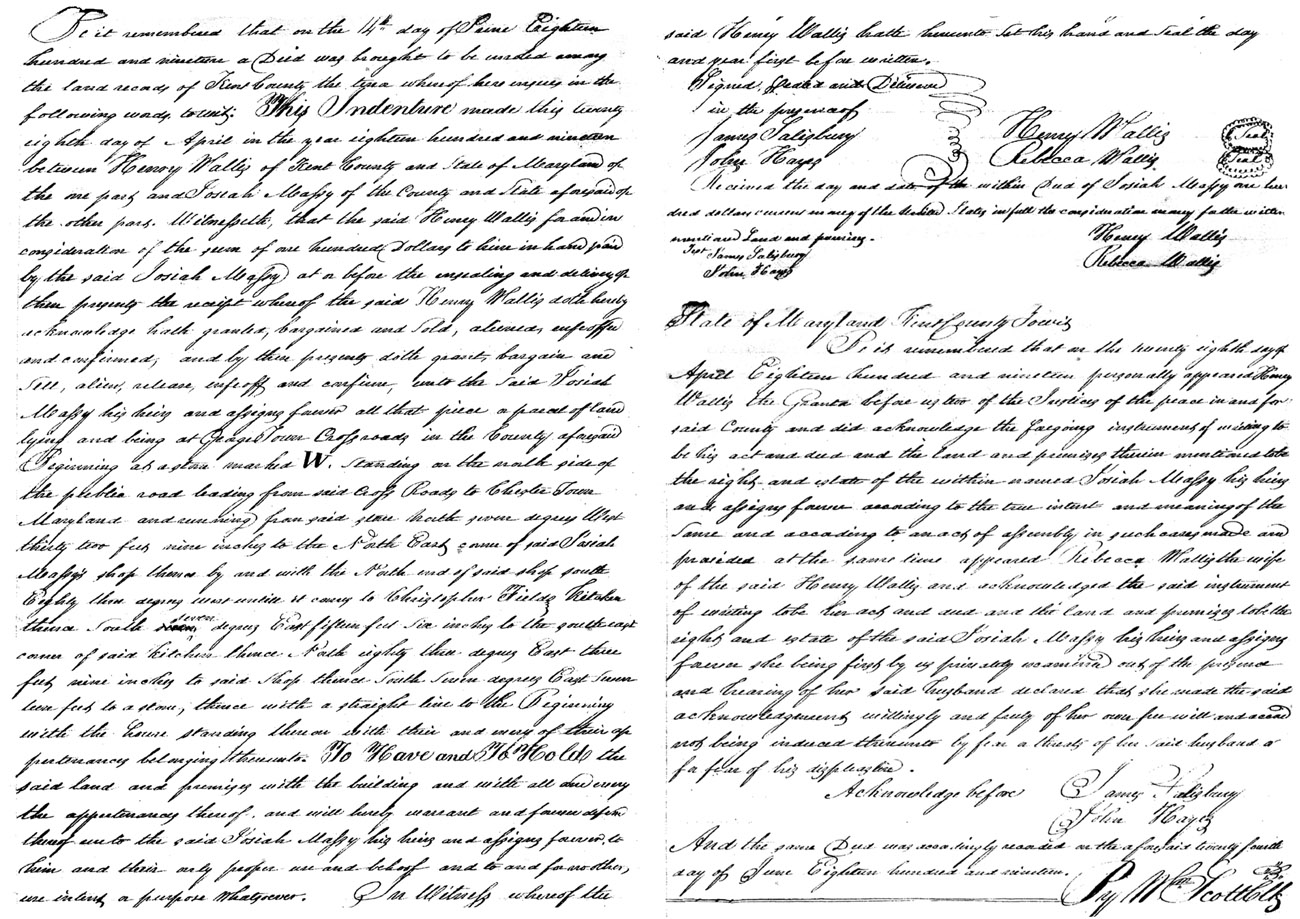 Be it remembered that on the 14th day of June Eighteen
hundred and nineteen a Deed was brought to be inroled among
the land records of Kent County the tenor whereof here insues in the
following words, to wit: This Indenture made this twenty
eighth day of April in the year eighteen hundred and nineteen
between Henry Wallis of Kent County and State of Maryland of
the one part and Josiah Massy of the County and State aforesaid of
the other part. Witnesseth, that the said Henry Wallis for and in
consideration of the sum of one hundred Dollars to him in hand paid
by the said Josiah Massy at or before the ensealing and delivery of
these presents the receipt whereof the said Henry Wallis doth hereby
acknowledge hath granted, bargained and Sold, aliened, enfeoffed
and confirmed, and by these presents doth grant, bargain and
Sell, alien, release, enfeoff and confirm, unto the said Josiah
Massy his heirs and assigns forever all that piece or parcel of land
lying and being at Georges Town Crossroads in the County aforesaid
Beginning at a stone marked W. Standing on the north side of
the public road leading from said Cross Roads to Chester Town
Maryland and running from said stone North seven degrees West
thirty two feet nine inches to the North East corner of said Josiah
Massy's shop thence by and with the North end of said shop south
Eighty three degrees west untill it comes to Christopher Fields Kitchen
thence South seven degrees East fifteen feet Six inches to the south east
corner of said Kitchen thence North eighty three degrees East three
feet nine inches to said Shop thence South Seven degrees East Seven
teen feet to a stone, thence with a straight line to the Beginning
with the house standing thereon with their and every of their ap
pertenances belonging thereunto. To Have and To Hold the
said land and premises with the building and with all and every
the appertenances thereof, and will hereby warrant and forever defend
thereof unto the said Josiah Massy his heirs and assigns forever, to
him and their only proper use and behoof and to and for no other,
use intent or purpose whatsoever. In Witness whereof the
said Henry Wallis hath hereunto Set his hand and Seal the day
and year first before written.
Signed, Sealed and Delivered
in the presence of
James Salisbury
John Hayes
Henry Wallis Seal
Rebecca Wallis Seal
Received the day and date of the within Deed of Josiah Massy one hun
dred dollars current money of the United States in full the consideration money for the within
mentioned Land and premises.
Test James Salisbury
John Hayes
Henry Wallis
Rebecca Wallis
State of Maryland Kent County Towit
Be it remembered that on the twenty eighth day of
April Eighteen hundred and nineteen personally appeared Henry
Wallis the Grantor before us two of the Justices of the peace in and for
said County and did acknowledge the foregoing instrument of writing to
be his act and deed and the land and premises therein mentioned to be
the right and estate of the within named Josiah Massy his heirs
and assigns forever according to the true intent and meaning of the
Same and according to an act of assembly in such cases made and
provided at the same time appeared Rebecca Wallis the wife
of the said Henry Wallis and acknowledged the said instrument
of writing to be her act and deed and the land and premises to be the
right and estate of the said Josiah Massy his heirs and assigns
forever she being first by us privately examined out of the presence
and hearing of her said husband declared that she made the said
acknowledgement willingly and freely of her own free will and accord
not being induced thereunto by fear or threats of her said husband or
for fear of his displeasure.
Acknowledge before
James Salisbury
John Hayes
And the same Deed was accordingly recorded on the aforesaid twenty fourth
day of June Eighteen hundred and nineteen.
Wm Scott Clk